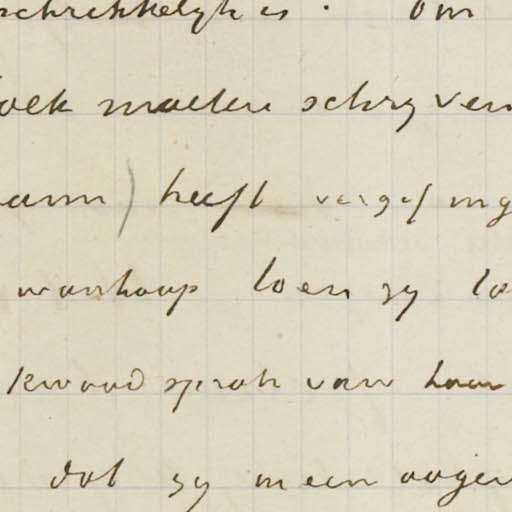 schrikkelyk is. Om
oek moeten schryven
aam) heeft vergif ing
wanhoop toen zy lo
kwaad sprak van haar
dat zy meen oogen